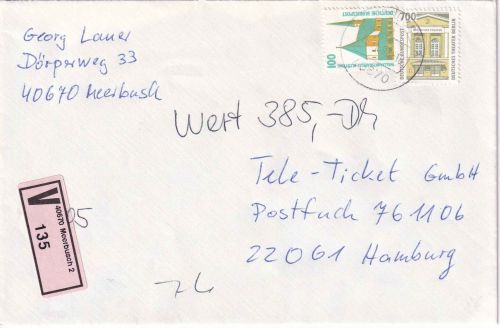 Georg Lauer
Dörperweg 33
40670 Meerbusch
100
DEUTSCHE BUNDESPOST
WALLFAHRTSKAPELLE ALTÖTTING
700
DEUTSCHE BUNDESPOST
DEUTSCHES THEATER BERLIN
Wert 385,-DM
V
40670 Meerbusch 2
135
Tele-Ticket GmbH
Postfach 761106
22061 Hamburg